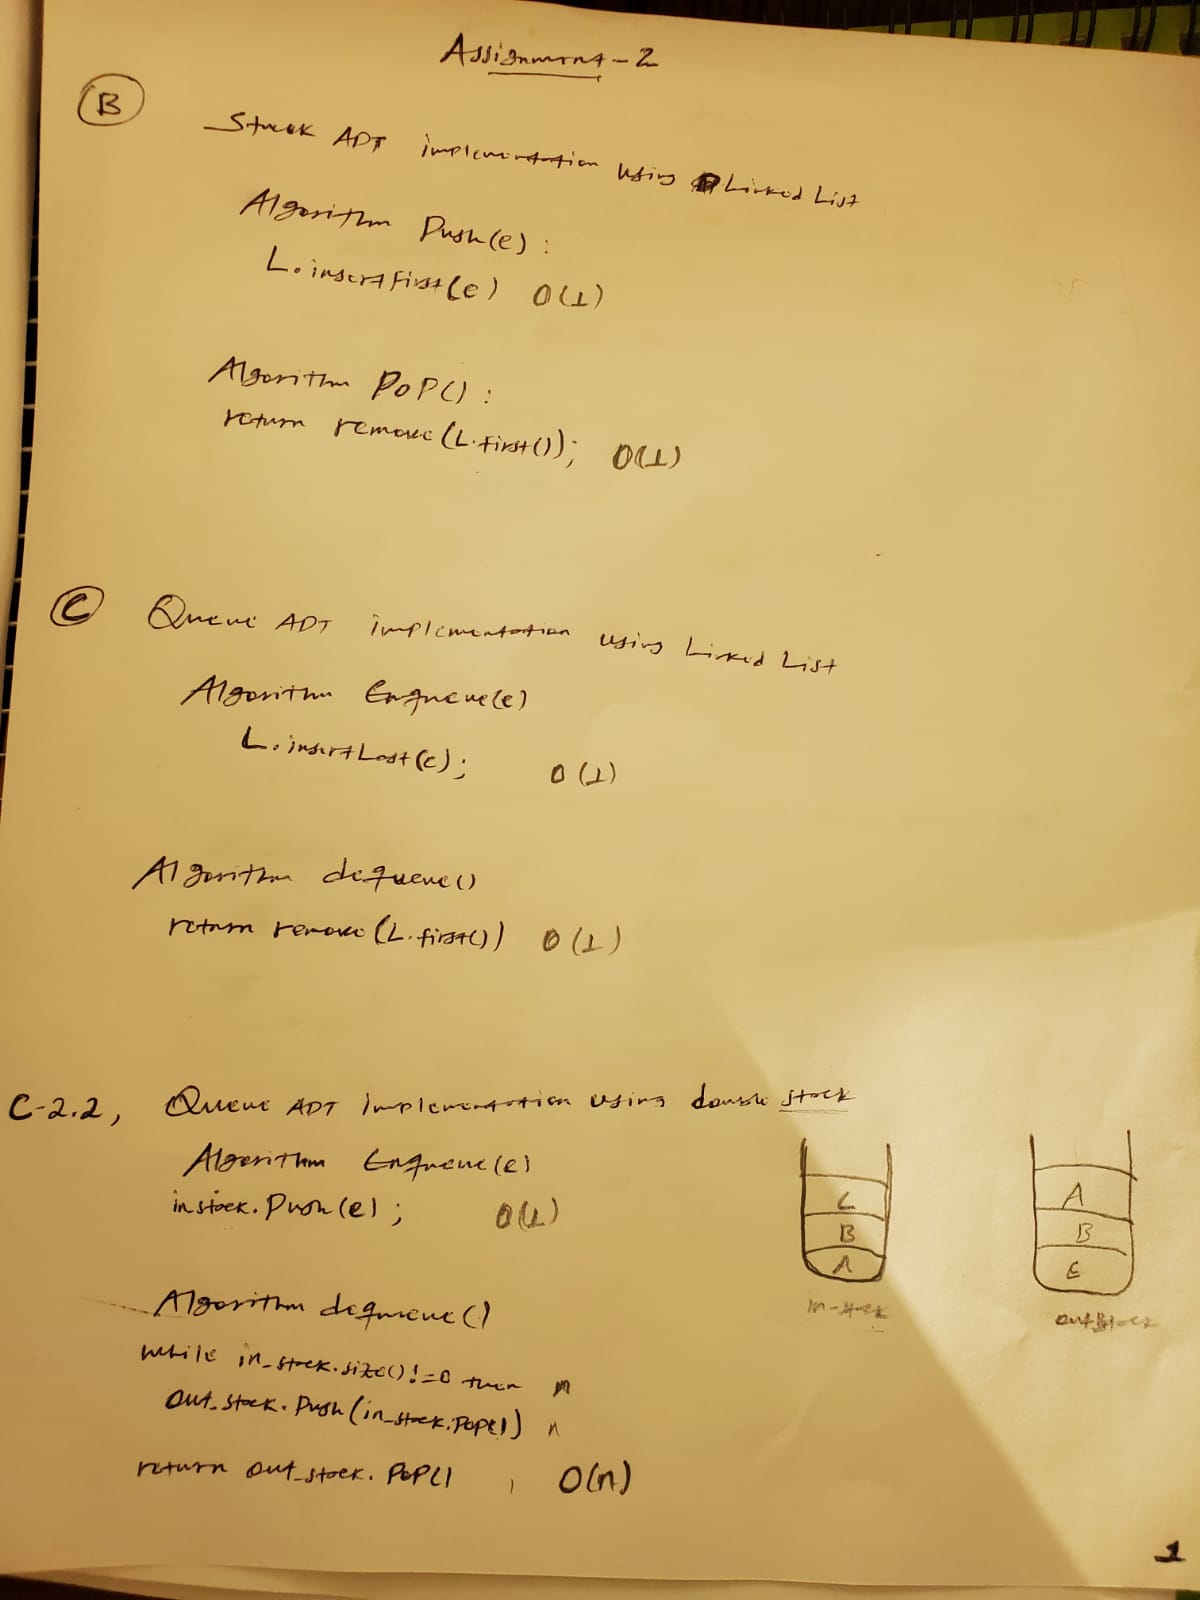 Assignment - 2
B
Stack ADT implementation using Linked List
Algorithm Push(e) :
L.insertFirst(e) O(1)
Algorithm POP() :
return remove(L.first()); O(1)
C
Queue ADT implementation using Linked List
Algorithm Enqueue(e)
L.insertLast(e); O(1)
Algorithm dequeue()
return remove(L.first()) O(1)
C-2.2, Queue ADT implementation using double stack
Algorithm Enqueue(e)
instack.Push(e); O(1)
C
B
A
in-stack
A
B
E
outstack
Algorithm dequeue()
while in_stack.size() != 0 then n
out_stack.Push(in_stack.POP()) n
return out_stack.POP() 1 O(n)
1